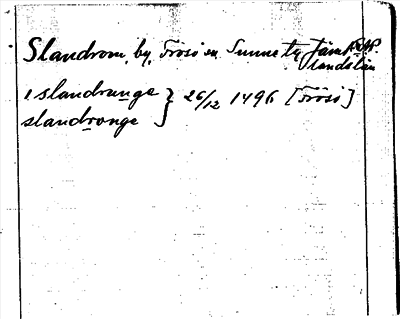 Slandrom by, Frösö sn Sunne tg Jämt
landslän
i slandrunge } 26/12 1496 [Frösö]
slandronge